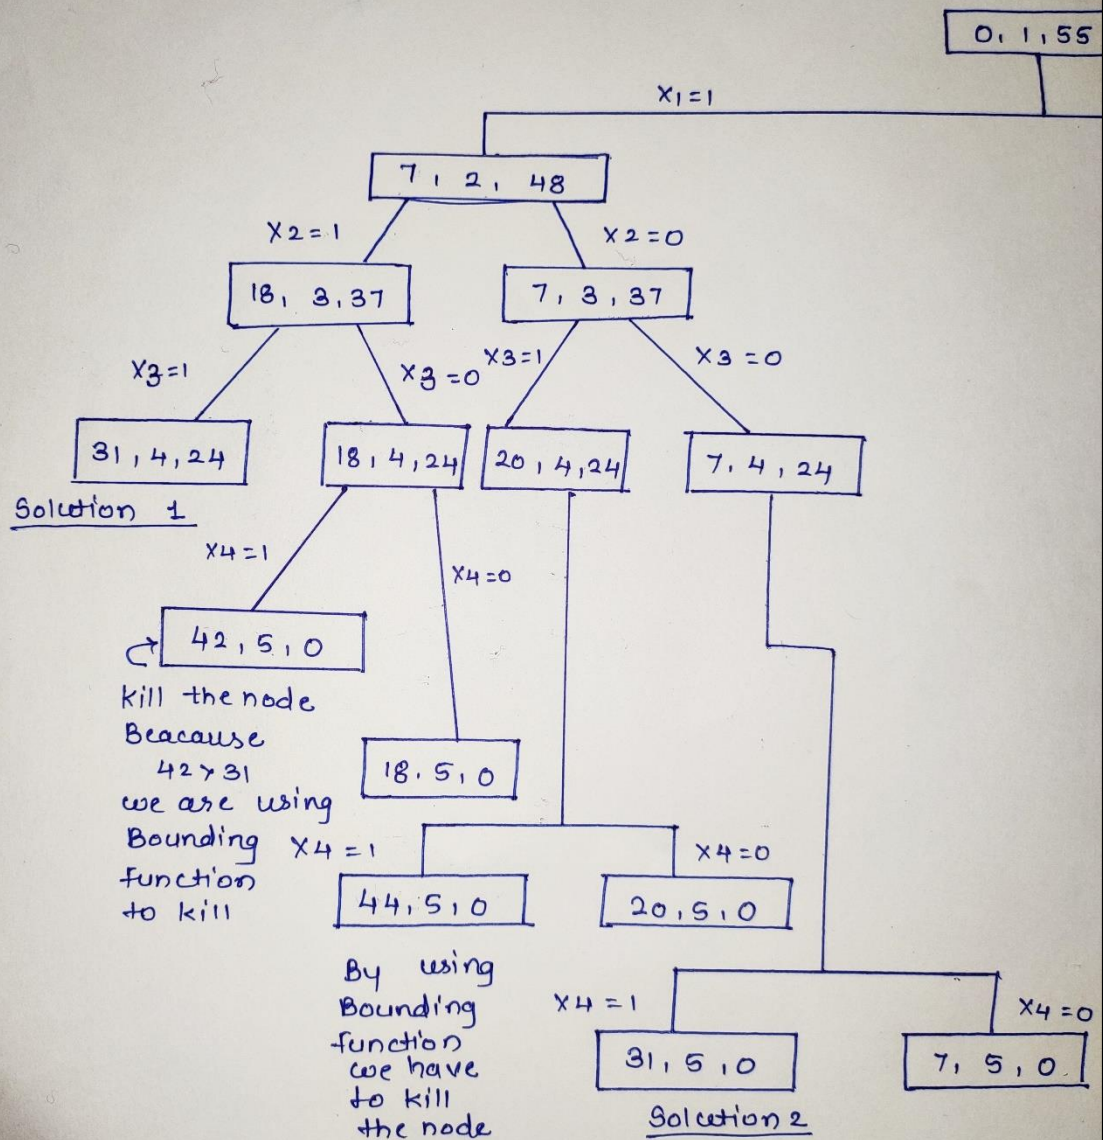 0, 1, 55
X1=1
7, 2, 48
X2=1
X2=0
18, 3, 37
7, 3, 37
X3=1
X3=0
X3=1
X3=0
31, 4, 24
18, 4, 24
20, 4, 24
7, 4, 24
Solution 1
X4=1
X4=0
42, 5, 0
kill the node
Beacause
42>31
we are using
Bounding
function
to kill
18. 5, 0
X4=1
X4=0
44, 5, 0
20, 5, 0
By using
Bounding
function
we have
to kill
the node
X4=1
X4=0
31, 5, 0
7, 5, 0.
Solution 2